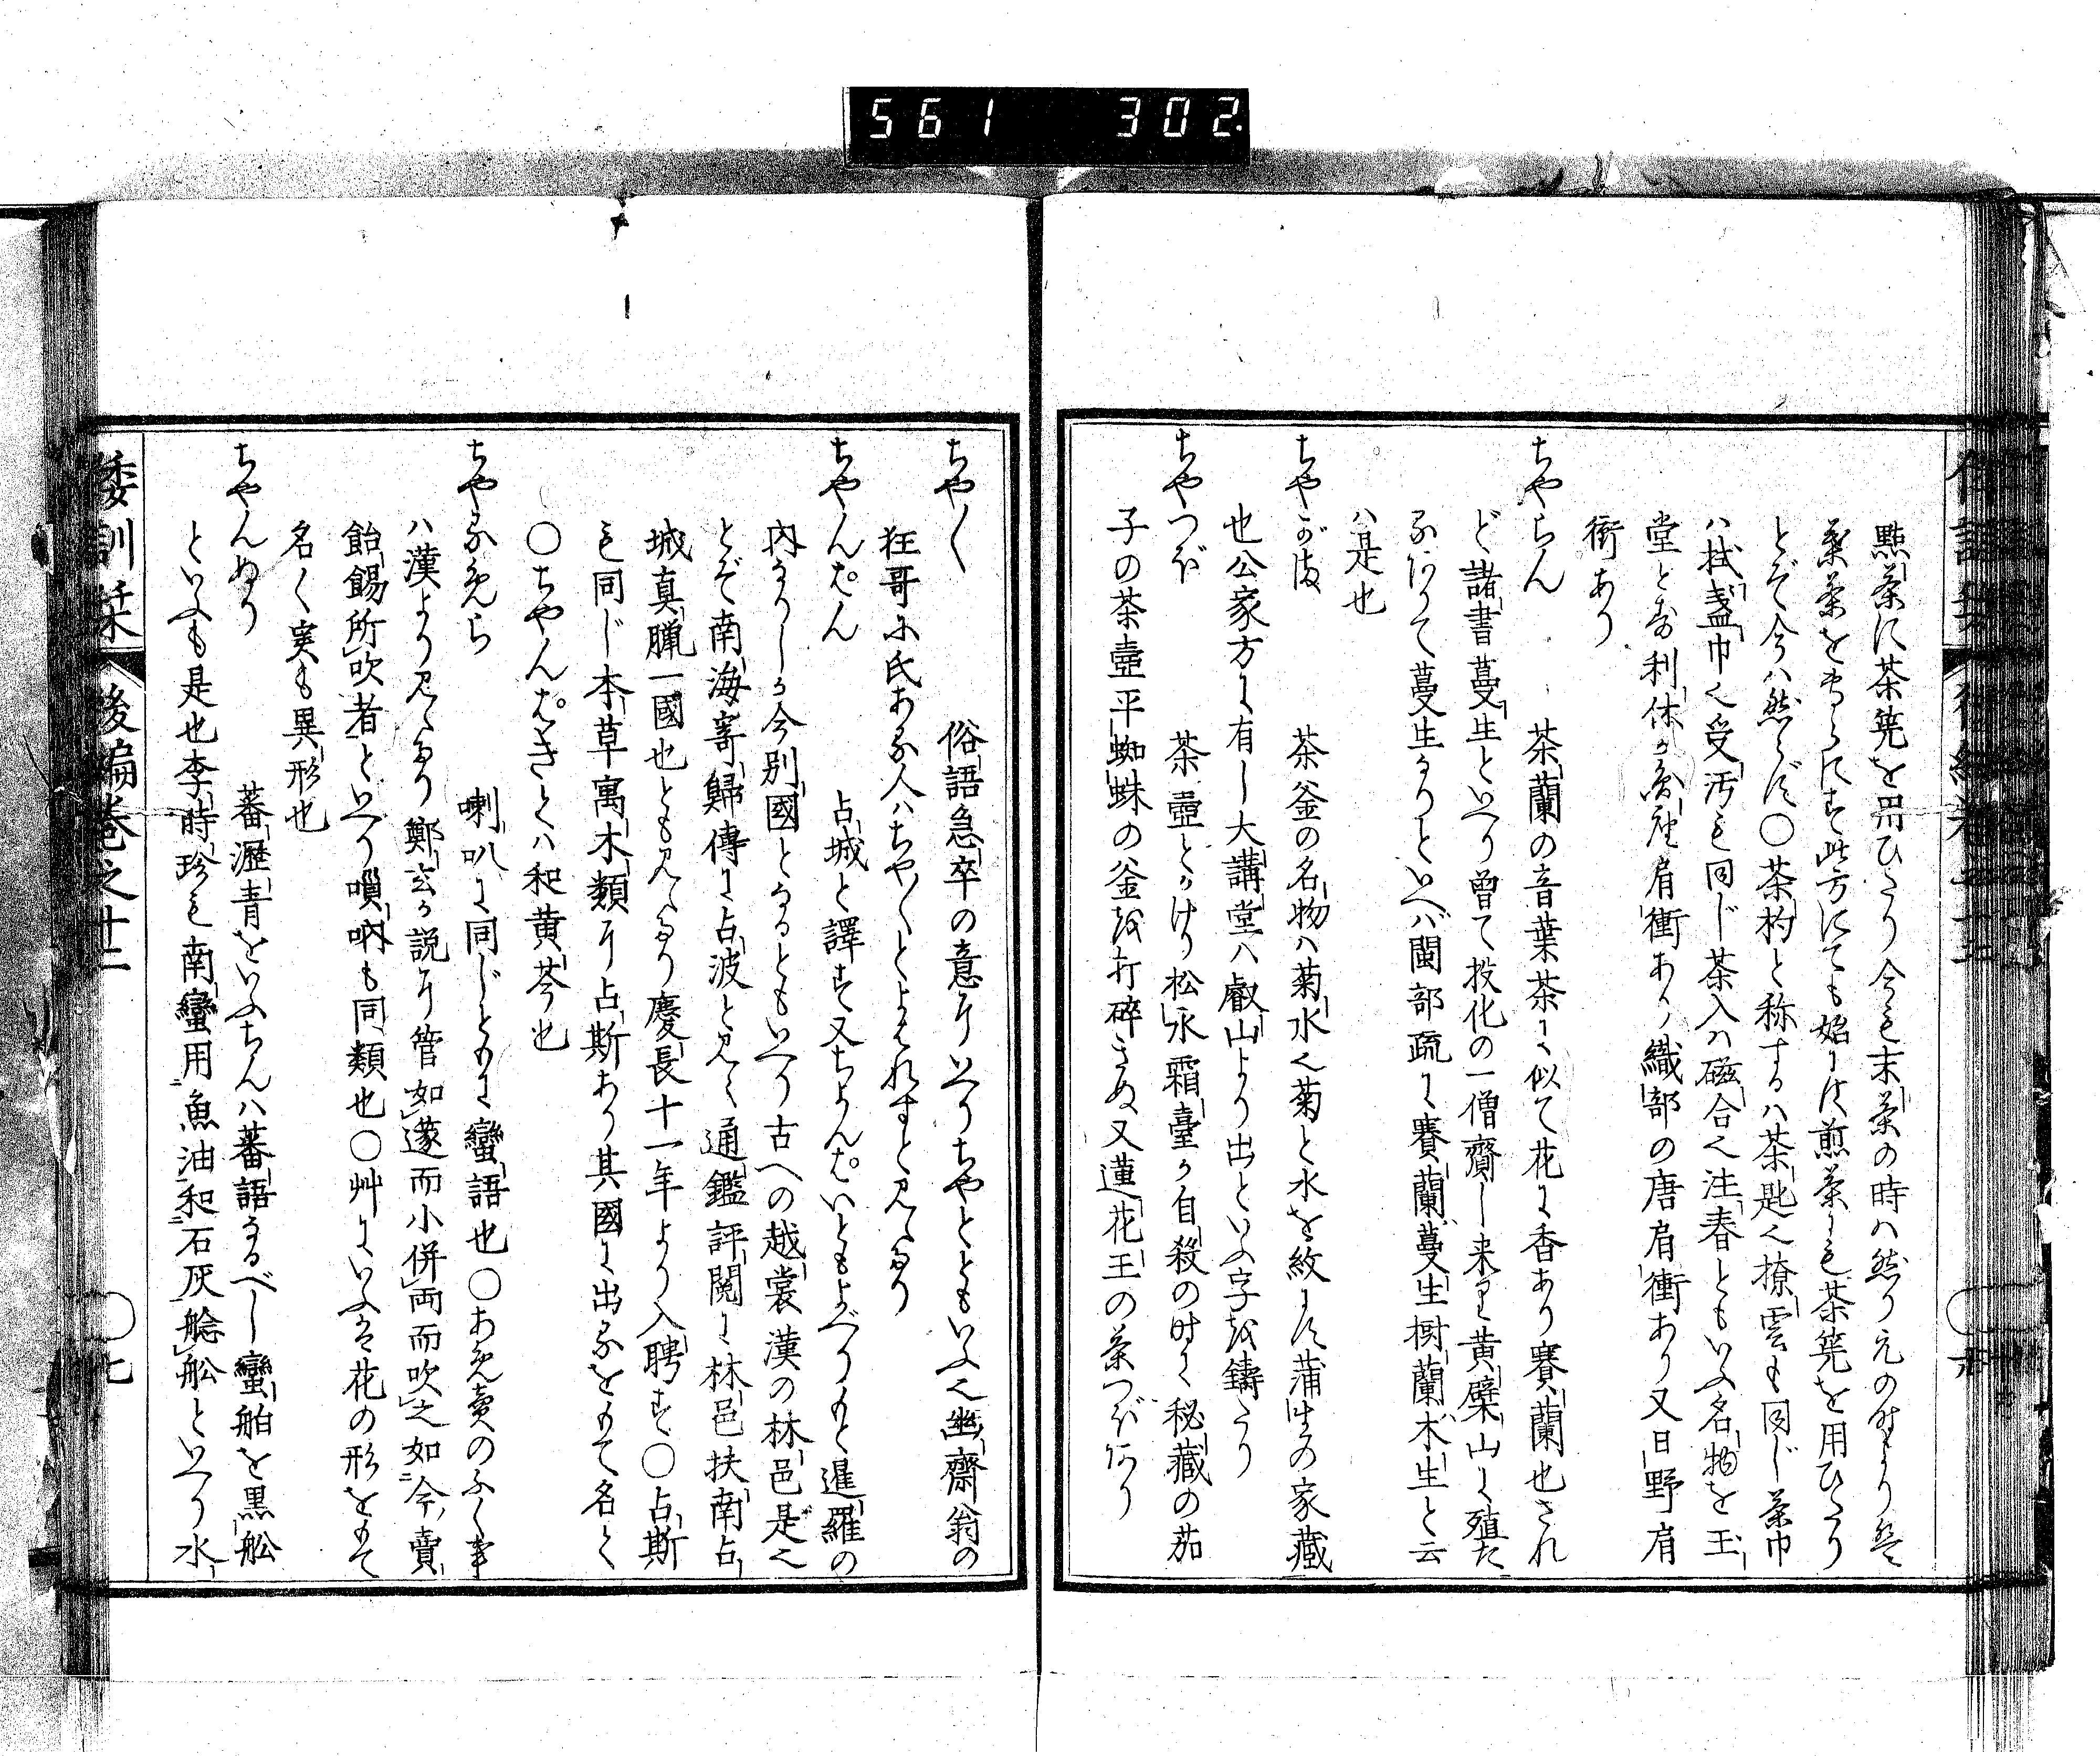 561 302.
點茶に茶筅を用ひたり今も末茶の時ハ然り元の時より
葉茶を専らにす此方にても始まは煎茶にも茶筅を用ひたり
とぞ今ハ然らず〇茶杓と称するハ茶匙也撩雲も同じ茶巾
ハ拭盞巾也受汚も同じ茶入ハ磁合也注春ともいふ名物を玉
堂とす利休か肩衝あり織部の唐肩衝あり又日野肩
衝あり
ちやらん 茶蘭の音葉茶に似て花に香あり賽蘭也され
ど諸書蔓生といへり曽て投化の一僧齎し来り黄檗山に殖た
るにハて蔓生なりといへバ閩部疏に賽蘭蔓生樹蘭木生と云
ハ是也
ちやがま 茶釜の名物ハ菊水也菊と水を紋とす蒲生の家藏
也公家方に有し大講堂ハ叡山より出といふ字を鑄たり
ちやつぼ 茶壺とかけり松永霜臺か自殺の時に秘藏の茄
子の茶壺平蜘蛛の釜を打碎きぬ又蓮花王の茶つぼあり
ちや〱 俗語急卒の意にいへりちやとともいふ也幽齋翁の
狂哥に氏ある人ハちや〱とよばれすと見えたり
ちやんぱん 占城と譯す又ちよんぱいともよべりもと暹羅の
内なりしか今別國となるともいへり古への越裳漢の林邑是也
とぞ南海寄歸傳に占波と見え通鑑評閲に林邑扶南占
城真臘一國也とも見えたり慶長十一年より入聘す〇占斯
も同じ本草寓木類に占斯あり其國に出るをもて名く
〇ちやんぱぎくハ和黄芩也
ちやるめら 喇叭に同じともに蠻語也〇あめ賣のふく事
ハ漢より見えたり鄭玄か説に管如遂而小併両而吹之如今賣
飴餳所吹者といへり嗩吶も同類也〇艸にいふは花の形をもて
名く実も異形也
ちやんぬり 蕃瀝青をいふちんハ蕃語なるべし蠻舶を黒舩
といふも是也李時珍も南蠻用魚油和石灰艌舩といへり水
倭訓栞 後編巻之十二 〇七